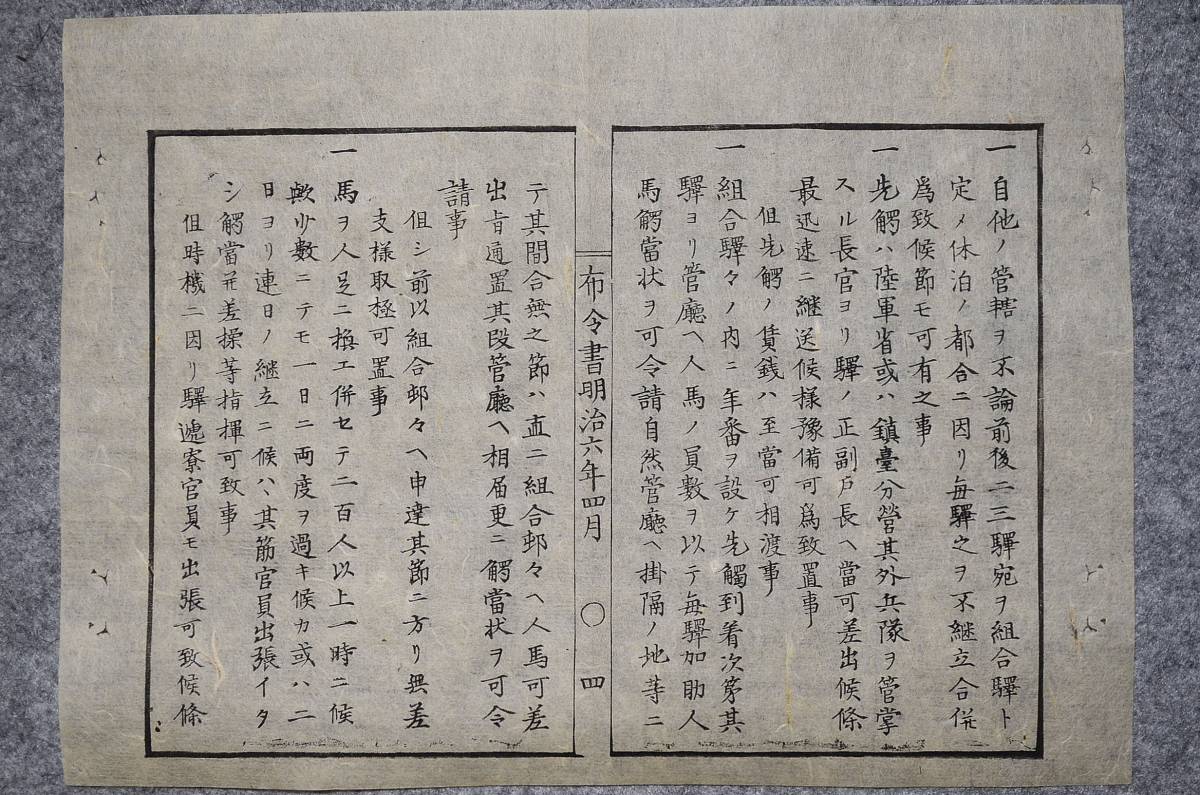 一 自他ノ管轄ヲ不論前後二三驛宛ヲ組合驛ト
定メ休泊ノ都合ニ因リ毎驛之ヲ不継立合併
爲致候節モ可有之事
一 先觸ハ陸軍省或ハ鎮臺分營其外兵隊ヲ管掌
スル長官ヨリ驛ノ正副戸長ヘ當可差出候條
最迅速ニ継送候様豫備可爲致置事
但先觸ノ賃銭ハ至當可相渡事
一 組合驛々ノ内ニ年番ヲ設ケ先觸到着次第其
驛ヨリ管廳ヘ人馬ノ員數ヲ以テ毎驛加助人
馬觸當状ヲ可令請自然管廳ヘ掛隔ノ地等ニ
布令書明治六年四月 〇 四
テ其間合無之節ハ直ニ組合邨々ヘ人馬可差
出旨通置其段管廳ヘ相届更ニ觸當状ヲ可令
請事
但シ前以組合邨々ヘ申達其節ニ方リ無差
支様取極可置事
一 馬ヲ人足ニ換エ併セテ二百人以上一時ニ候
歟少數ニテモ一日ニ両度ヲ過キ候カ或ハ二
日ヨリ連日ノ継立ニ候ハヽ其筋官員出張イタ
シ觸當并差操等指揮可致事
但時機ニ因リ驛遞寮官員モ出張可致候條